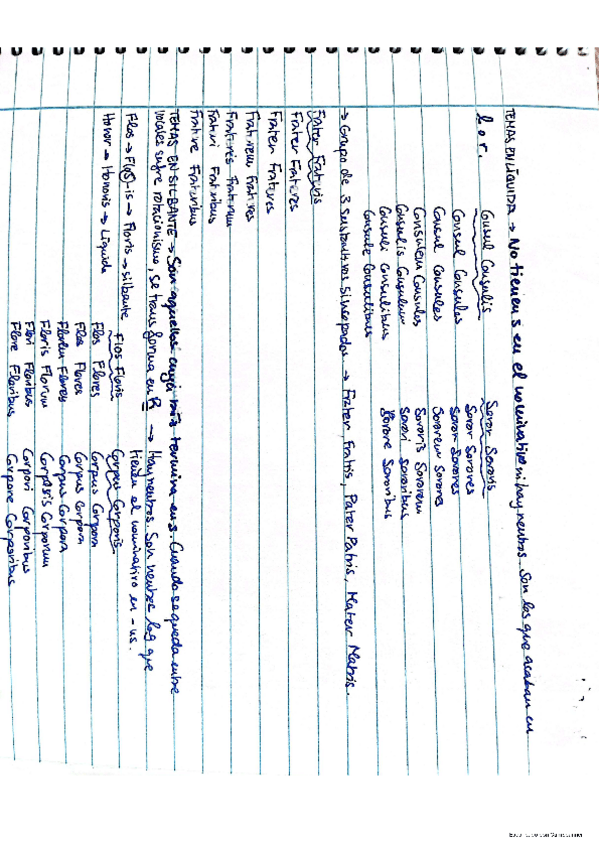 TEMAS EN LÍQUIDA → No tienen s en el nominativo ni hay neutros. Son los que acaban en
l o r.
Consul Consulis
Consul Consules
Consul Consules
Consulem Consules
Consulis Consulum
Consuli Consulibus
Consule Consulibus
Soror Sororis
Soror Sorores
Soror Sorores
Sororem Sorores
Sororis Sororum
Sorori Sororibus
Sorore Sororibus
→ Grupo de 3 sustantivos sincopados → Frater Fratris, Pater Patris, Mater Matris.
Frater Fratris
Frater Fratres
Frater Fratres
Fratrem Fratres
Fratris Fratrum
Fratri Fratribus
Fratre Fratribus
TEMAS EN SILBANTE → Son aquellos cuya raíz termina en s. Cuando se queda entre
vocales sufre rotacionismo, se transforma en R → Hay neutros. Son neutros los que
tienen el nominativo en -us.
Flos → Flos-is → Floris → silbante
Honor → Honoris → Líquida
Flos Floris
Flos Flores
Flos Flores
Florem Flores
Floris Florum
Flori Floribus
Flore Floribus
Corpus Corporis
Corpus Corpora
Corpus Corpora
Corpus Corpora
Corporis Corporum
Corpori Corporibus
Corpore Corporibus